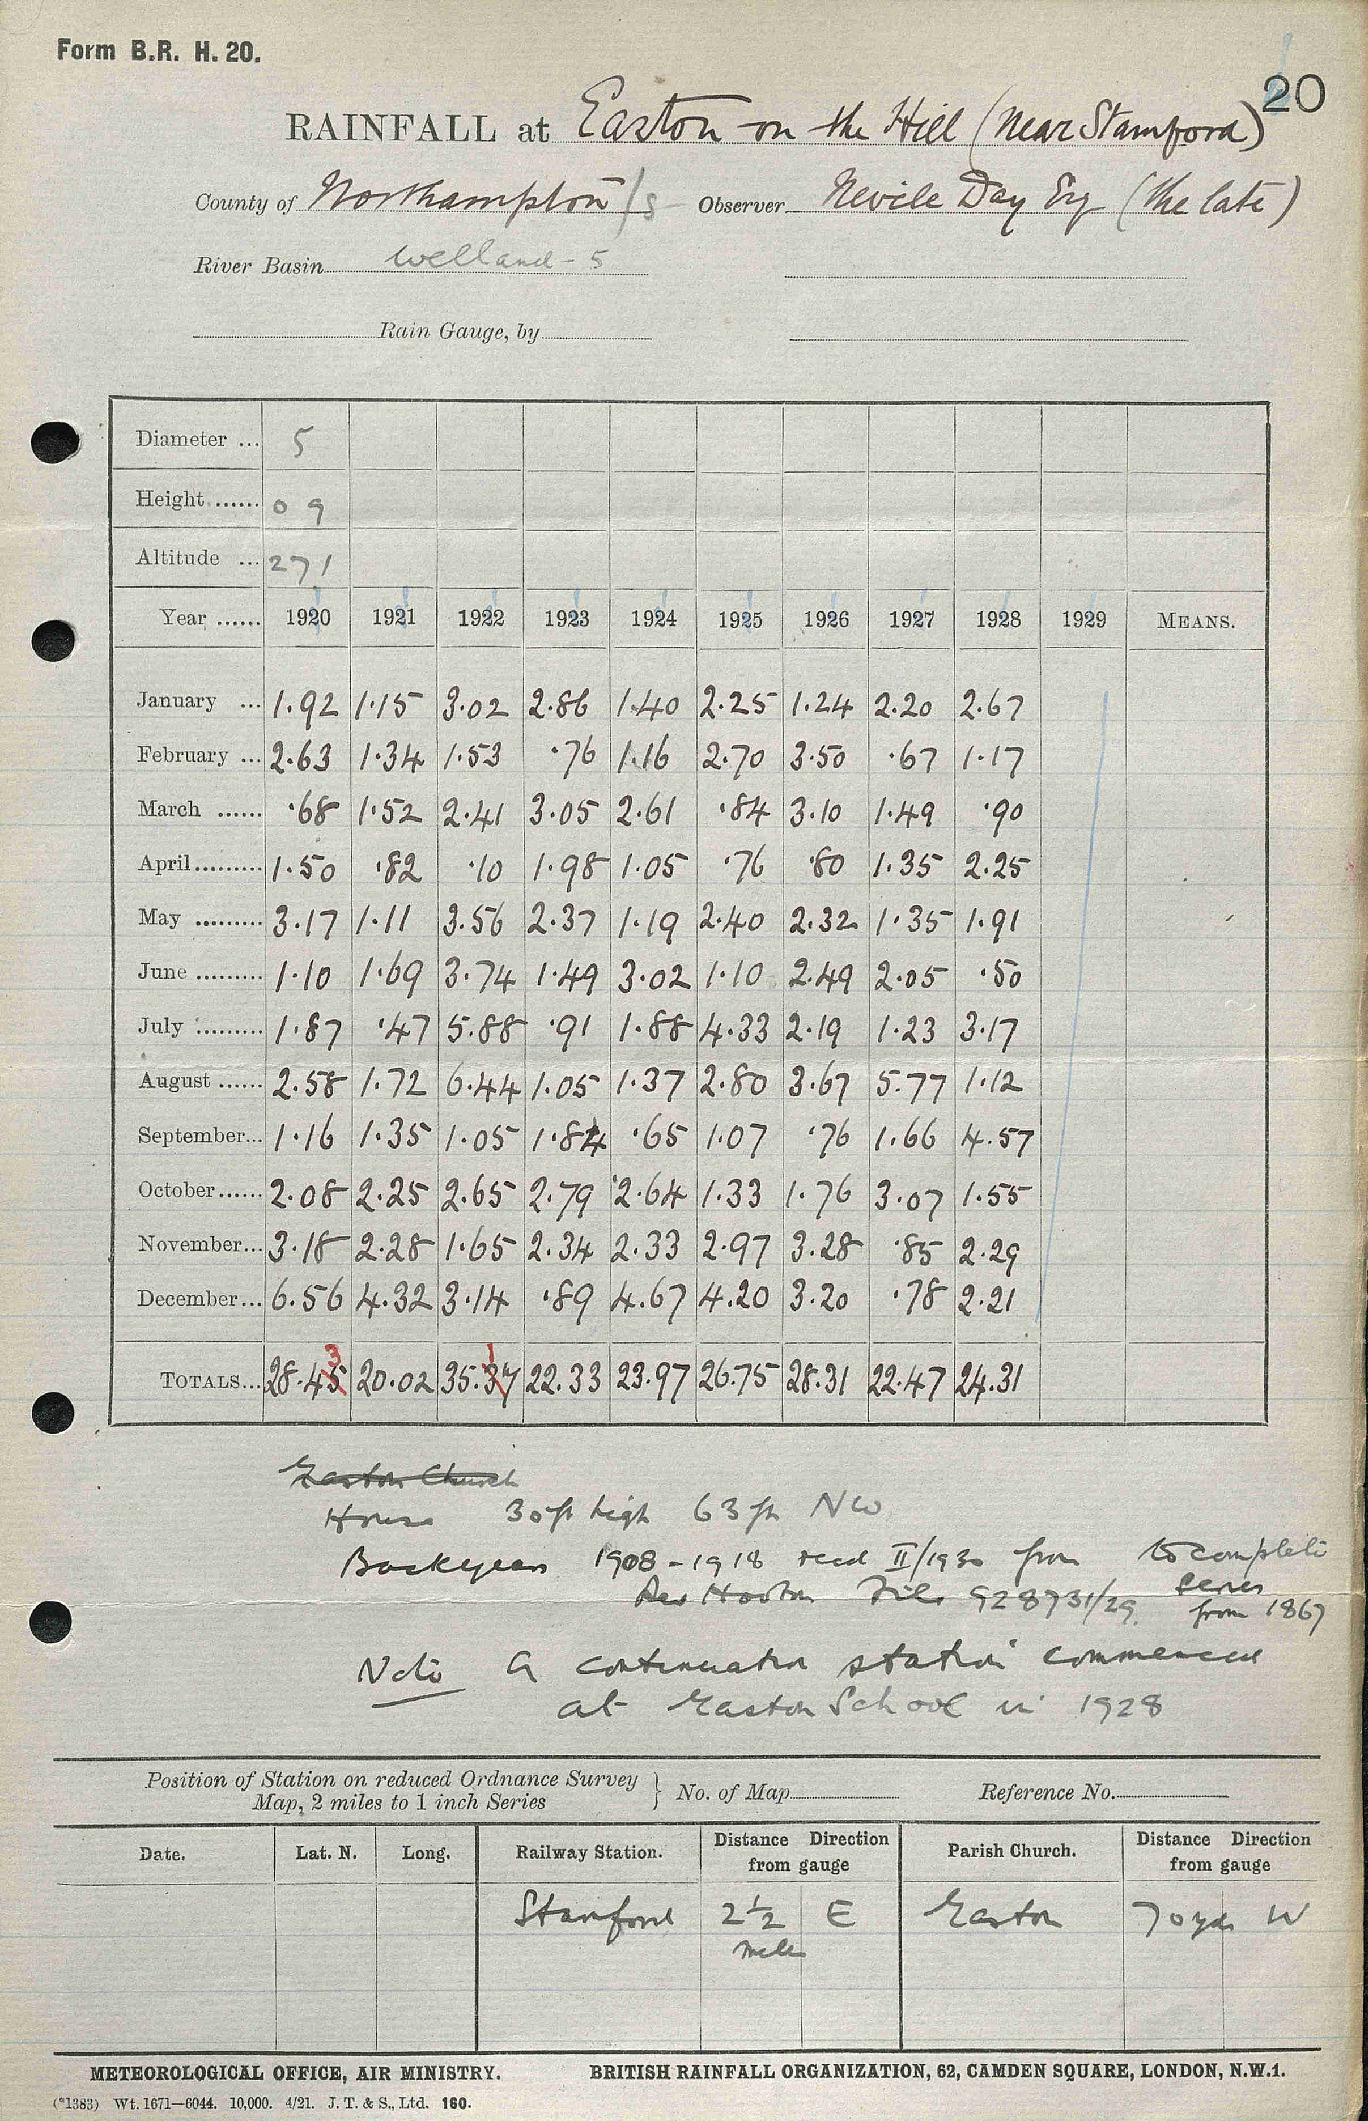 Form B.R. H. 20.
20
RAINFALL at Easton on the Hill (Near Stamford)
County of Northampton/s Observer Nevile Day Esq (the late)
River Basin Welland - 5
Rain Gauge, by
Diameter ... 5
Height ...... 0 9
Altitude ... 271
Year ...... 1920 1921 1922 1923 1924 1925 1926 1927 1928 1929 MEANS.
January ... 1.92 1.15 3.02 2.86 1.40 2.25 1.24 2.20 2.67
February ... 2.63 1.34 1.53 .76 1.16 2.70 3.50 .67 1.17
March ...... .68 1.52 2.41 3.05 2.61 .84 3.10 1.49 .90
April ......... 1.50 .82 .10 1.98 1.05 .76 .80 1.35 2.25
May ......... 3.17 1.11 3.56 2.37 1.19 2.40 2.32 1.35 1.91
June ......... 1.10 1.69 3.74 1.49 3.02 1.10 2.49 2.05 .50
July ......... 1.87 .47 5.88 .91 1.88 4.33 2.19 1.23 3.17
August ...... 2.58 1.72 6.44 1.05 1.37 2.80 3.67 5.77 1.12
September... 1.16 1.35 1.05 1.84 .65 1.07 .76 1.66 4.57
October ...... 2.08 2.25 2.65 2.79 2.64 1.33 1.76 3.07 1.55
November... 3.18 2.28 1.65 2.34 2.33 2.97 3.28 .85 2.29
December... 6.56 4.32 3.14 .89 4.67 4.20 3.20 .78 2.21
3 1
TOTALS... 28.45 20.02 35.37 22.33 23.97 26.75 28.31 22.47 24.31
Easton Church
House 30ft high 63 ft NW
Backyears 1908 - 1918 recd II/1930 from to complete
Rev Hooton File 928731/29 series
from 1867
Note A continuation station commenced
at Easton School in 1928
Position of Station on reduced Ordnance Survey
Map, 2 miles to 1 inch Series
No. of Map Reference No.
Date. Lat. N. Long. Railway Station. Distance Direction from gauge Parish Church. Distance Direction from gauge
Stamford 2½ E Easton 70 yds W
mile
METEOROLOGICAL OFFICE, AIR MINISTRY. BRITISH RAINFALL ORGANIZATION, 62, CAMDEN SQUARE, LONDON, N.W.1.
(*1383) Wt. 1671—6044. 10,000. 4/21. J. T. & S., Ltd. 160.